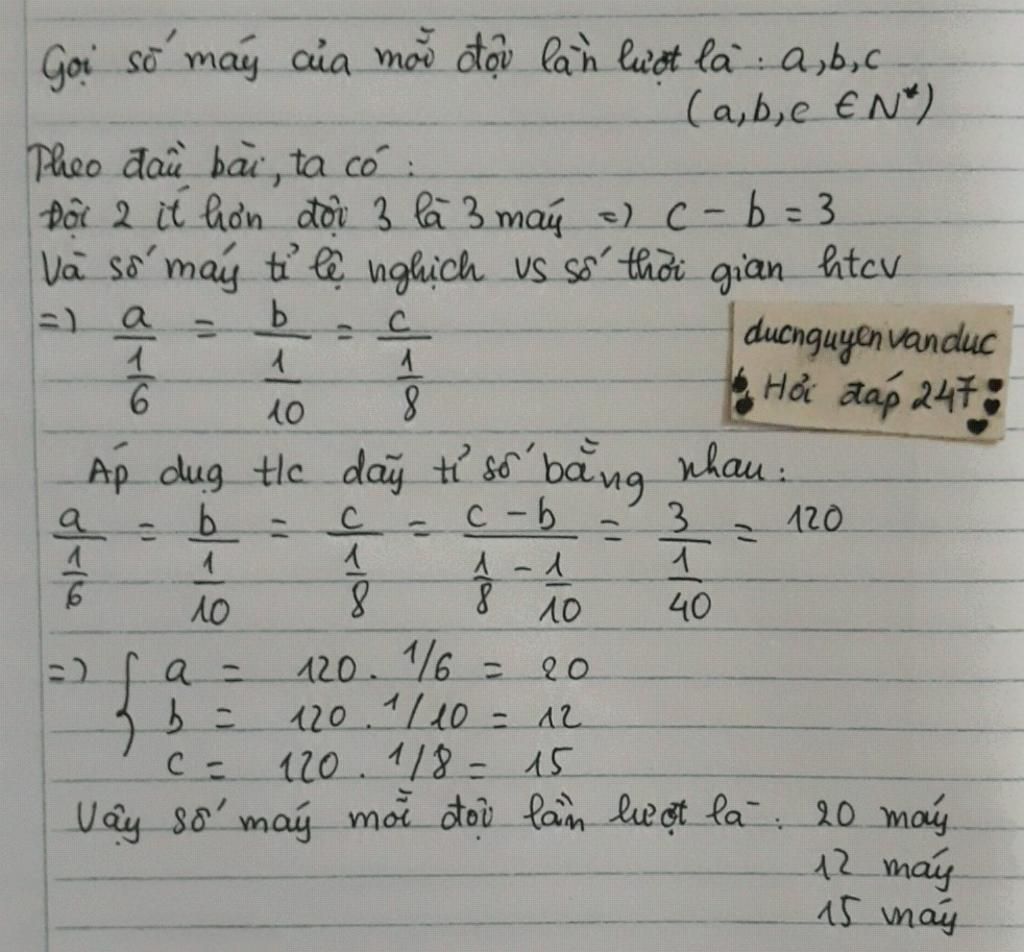 Gọi số máy của mỗi đội lần lượt là : a,b,c
(a,b,c ∈ N*)
Theo đầu bài, ta có :
Đội 2 ít hơn đội 3 là 3 máy => c - b = 3
Và số máy tỉ lệ nghịch vs số thời gian htcv
=> a/(1/6) = b/(1/10) = c/(1/8)
ducnguyenvanduc
Hỏi đáp 247
Áp dụg t/c dãy tỉ số bằng nhau :
a/(1/6) = b/(1/10) = c/(1/8) = (c - b)/(1/8 - 1/10) = 3/(1/40) = 120
=> { a = 120 . 1/6 = 20
b = 120 . 1/10 = 12
c = 120 . 1/8 = 15
Vậy số máy mỗi đội lần lượt là : 20 máy
12 máy
15 máy